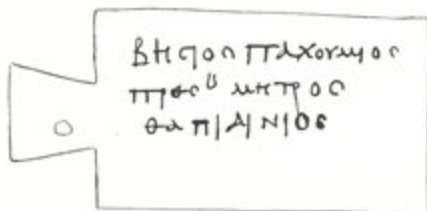 Βησιος Παχουμιος
πρεσυ μητρος
Θαπιαινιος